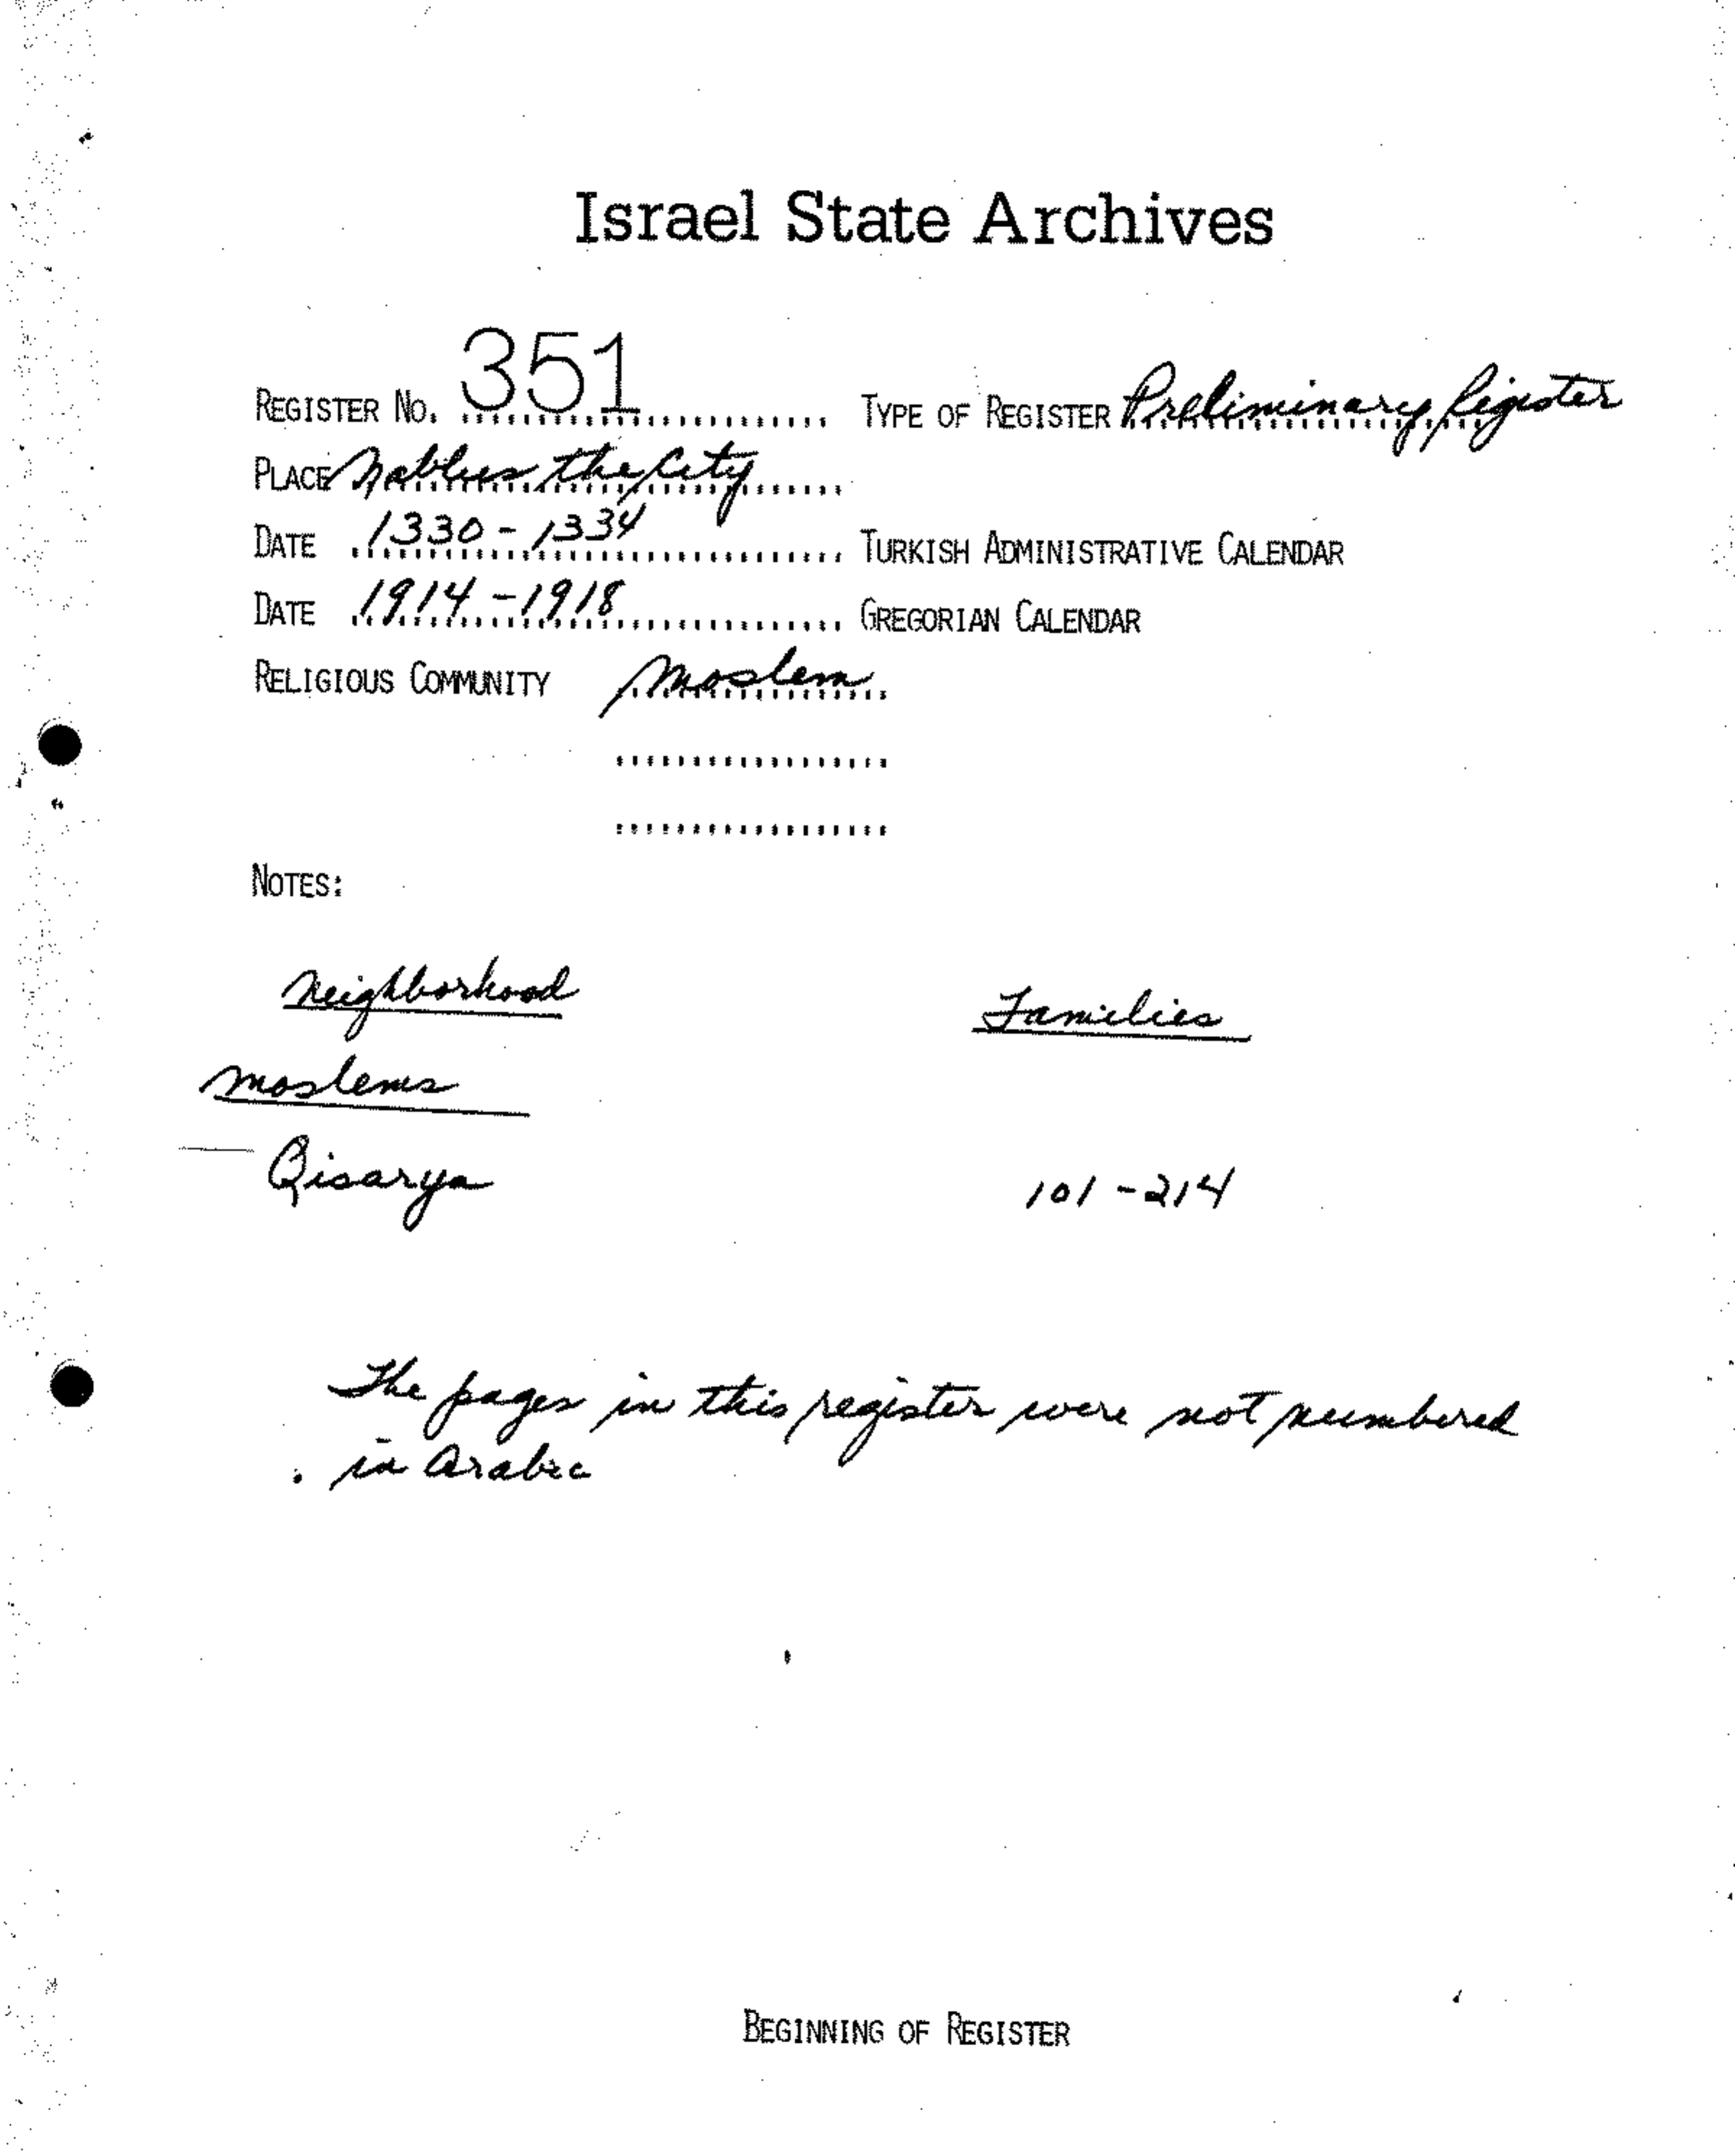 Israel State Archives
REGISTER NO. 351 TYPE OF REGISTER Preliminary Register
PLACE Nablus the City
DATE 1330-1334 TURKISH ADMINISTRATIVE CALENDAR
DATE 1914-1918 GREGORIAN CALENDAR
RELIGIOUS COMMUNITY Moslem
NOTES:
Neighborhood Families
Moslems
Qisarya 101-214
The pages in this register were not numbered
in Arabic
BEGINNING OF REGISTER